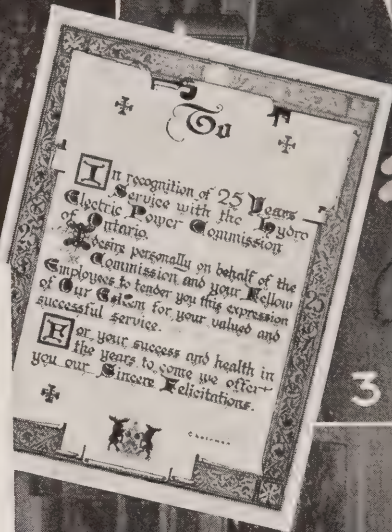 To
In recognition of 25 Years
Service with the Hydro
Electric Power Commission
of Ontario.
I desire personally on behalf of the
Commission and your Fellow
Employees to tender you this expression
of Our Esteem for your valued and
successful service.
For your success and health in
the years to come we offer
you our Sincere Felicitations.
Chairman
3